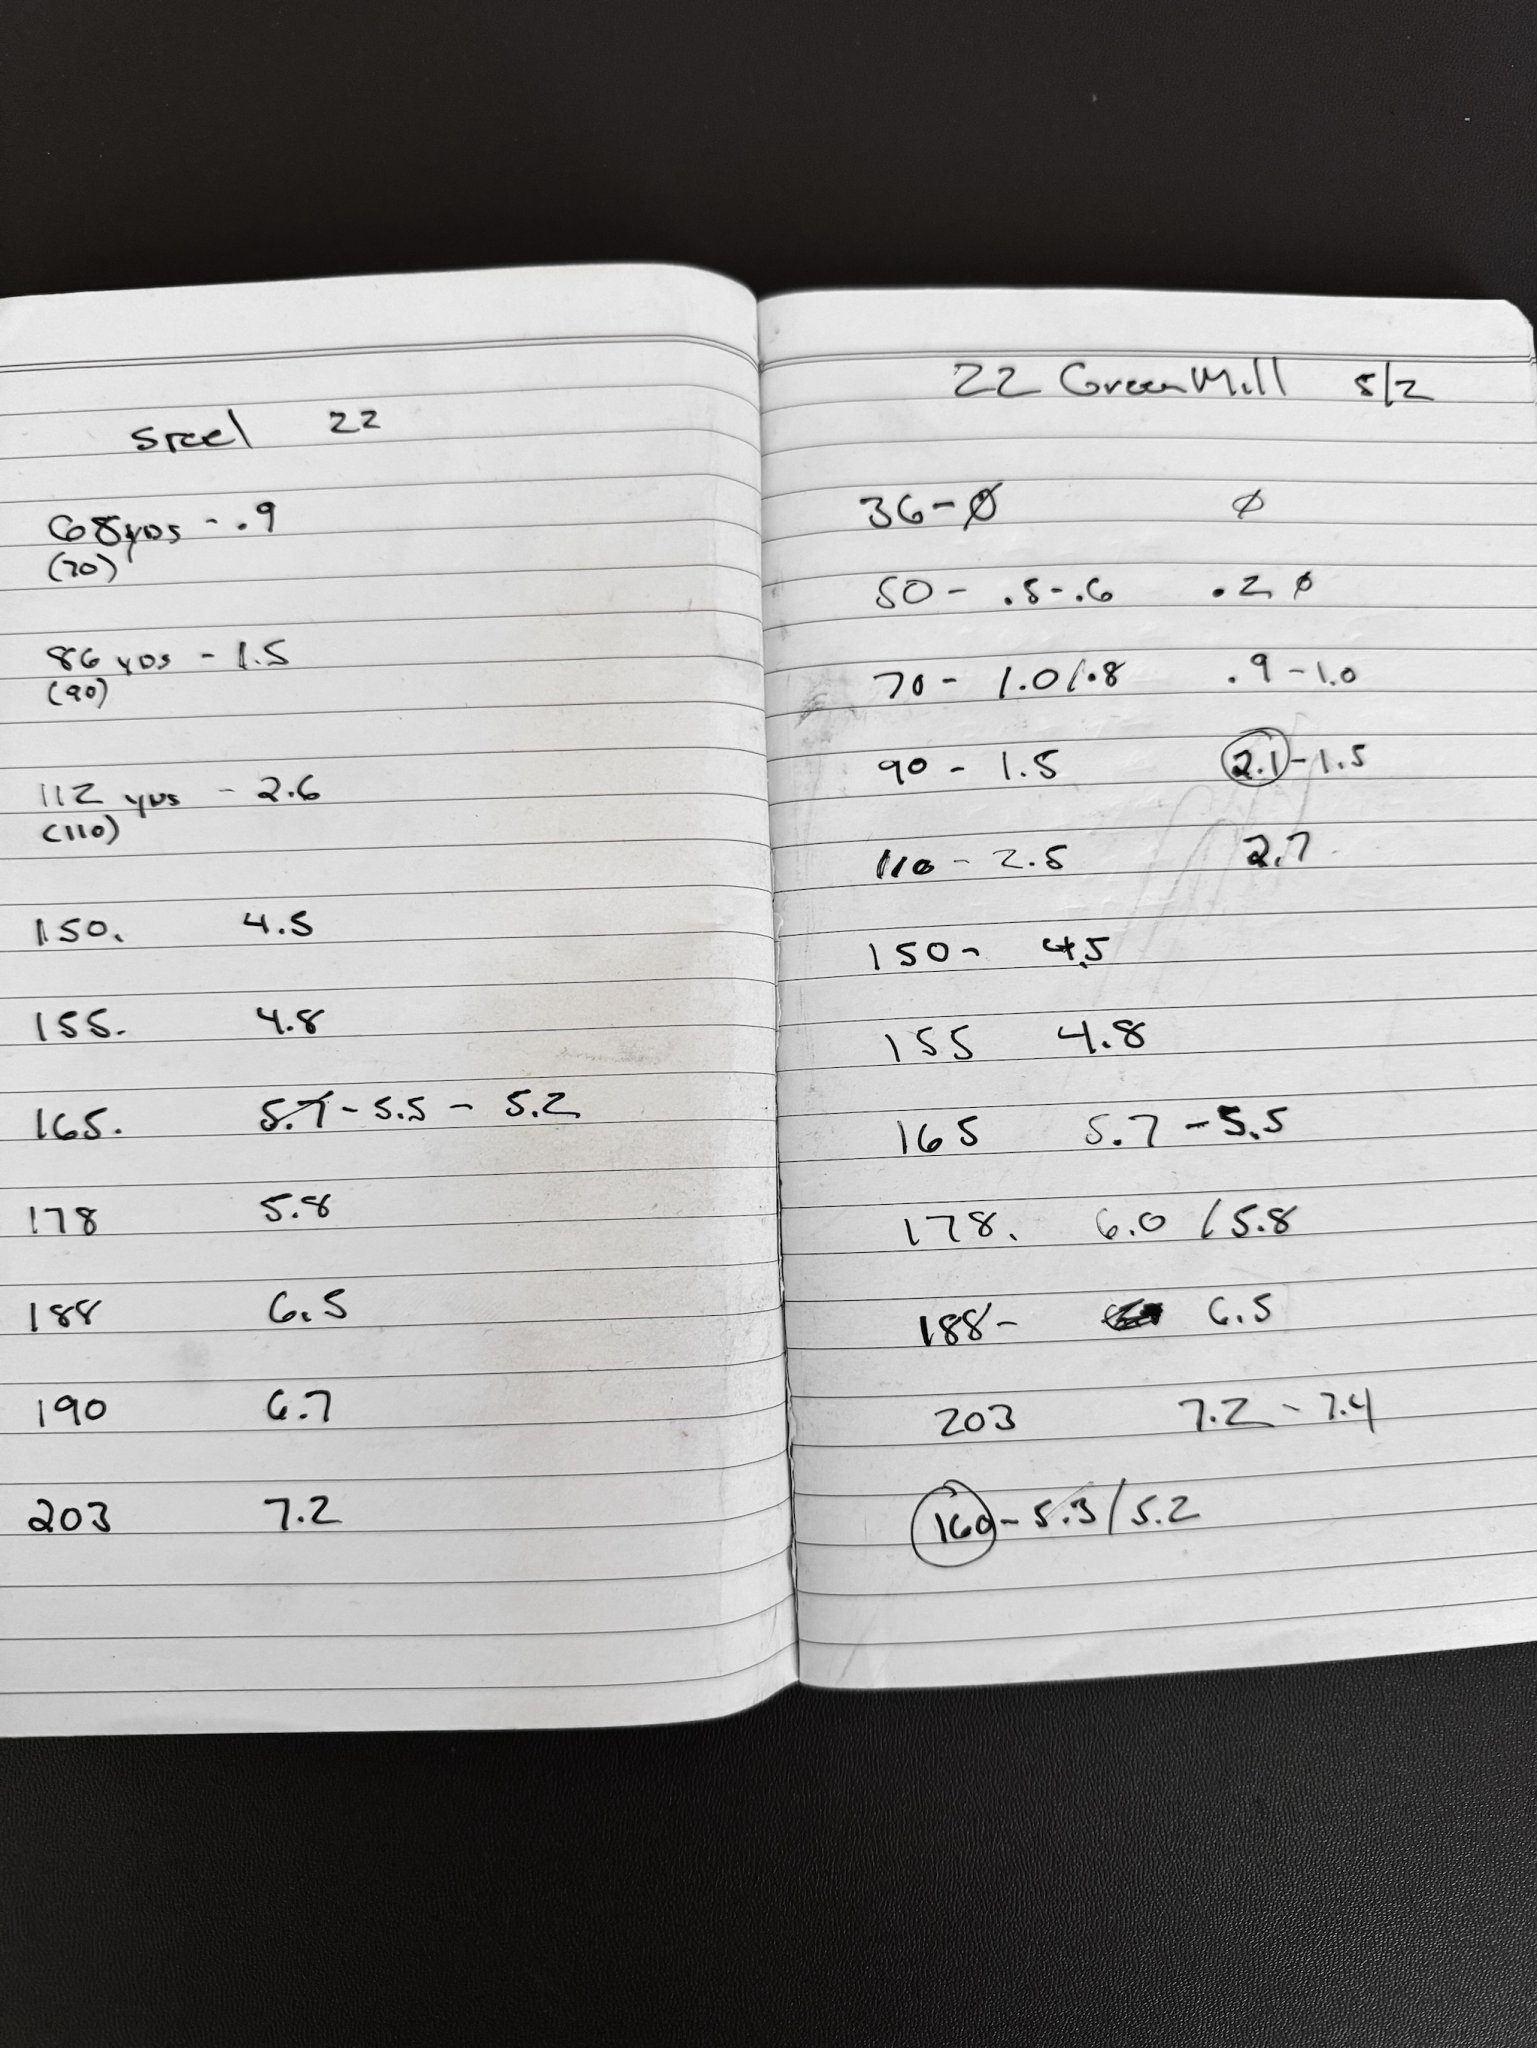 Steel 22
68 yds - .9
(70)
86 yds - 1.5
(90)
112 yds - 2.6
(110)
150. 4.5
155. 4.8
165. 5.7 - 5.5 - 5.2
178 5.8
188 6.5
190 6.7
203 7.2
22 GreenMill 5/2
36 - Ø Ø
50 - .5 - .6 .2 Ø
70 - 1.0 / .8 .9 - 1.0
90 - 1.5 2.1 - 1.5
110 - 2.5 2.7
150 - 4.5
155 4.8
165 5.7 - 5.5
178. 6.0 / 5.8
188 - 6.5
203 7.2 - 7.4
160 - 5.3 / 5.2